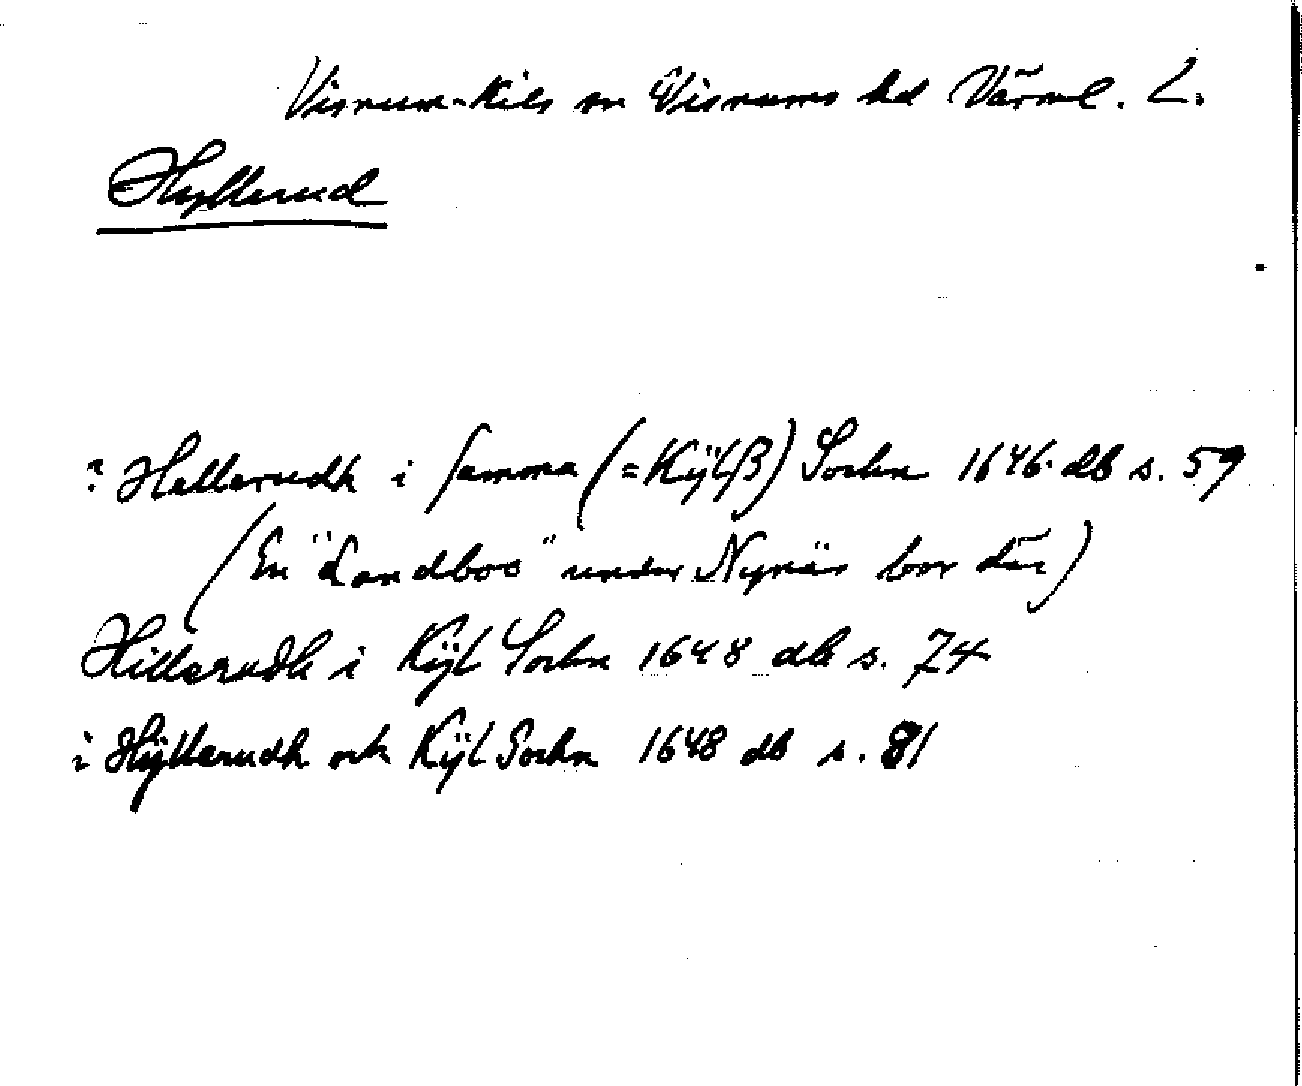 Visnum-Kils sn Visnums hd Värml. L.
Hyllerud
? Hellerudh i samma (=Kÿlß) Sochn 1646 db s. 59
(En "Landboo" under Nynäs bor där)
Hillerudh i Kÿl Sochn 1648 db s. 74
i Hÿllerudh och Kÿl Sochn 1648 db s. 81